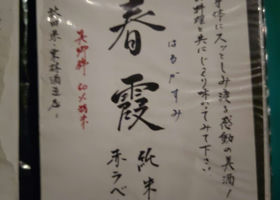 身体にスッとしみ渡る感動の美酒!
料理と共にじっくり味わってみて下さい
春霞
はるがすみ
純米
赤ラベ
美郷錦 60%精米
秋田県・栗林酒造店